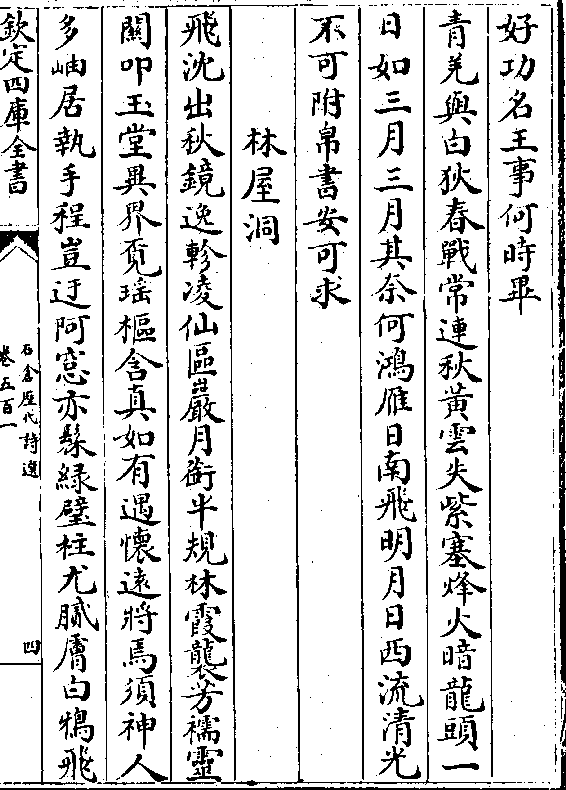 好功名王事何時畢
青羌與白狄春戰常連秋黃雲失紫塞烽火暗龍頭一
日如三月三月其奈何鴻雁日南飛明月日西流清光
不可附帛書安可求
林屋洞
飛沈出秋鏡逸軫凌仙區巖月銜半規林霞襲芳襦靈
關叩玉堂異界覓瑤樞含真如有遇懷遠將焉須神人
多岫居執手程豈迂阿窓亦髹綠壁柱尤膩膚白鴉飛
欽定四庫全書
石倉歷代詩選
卷五百一
四